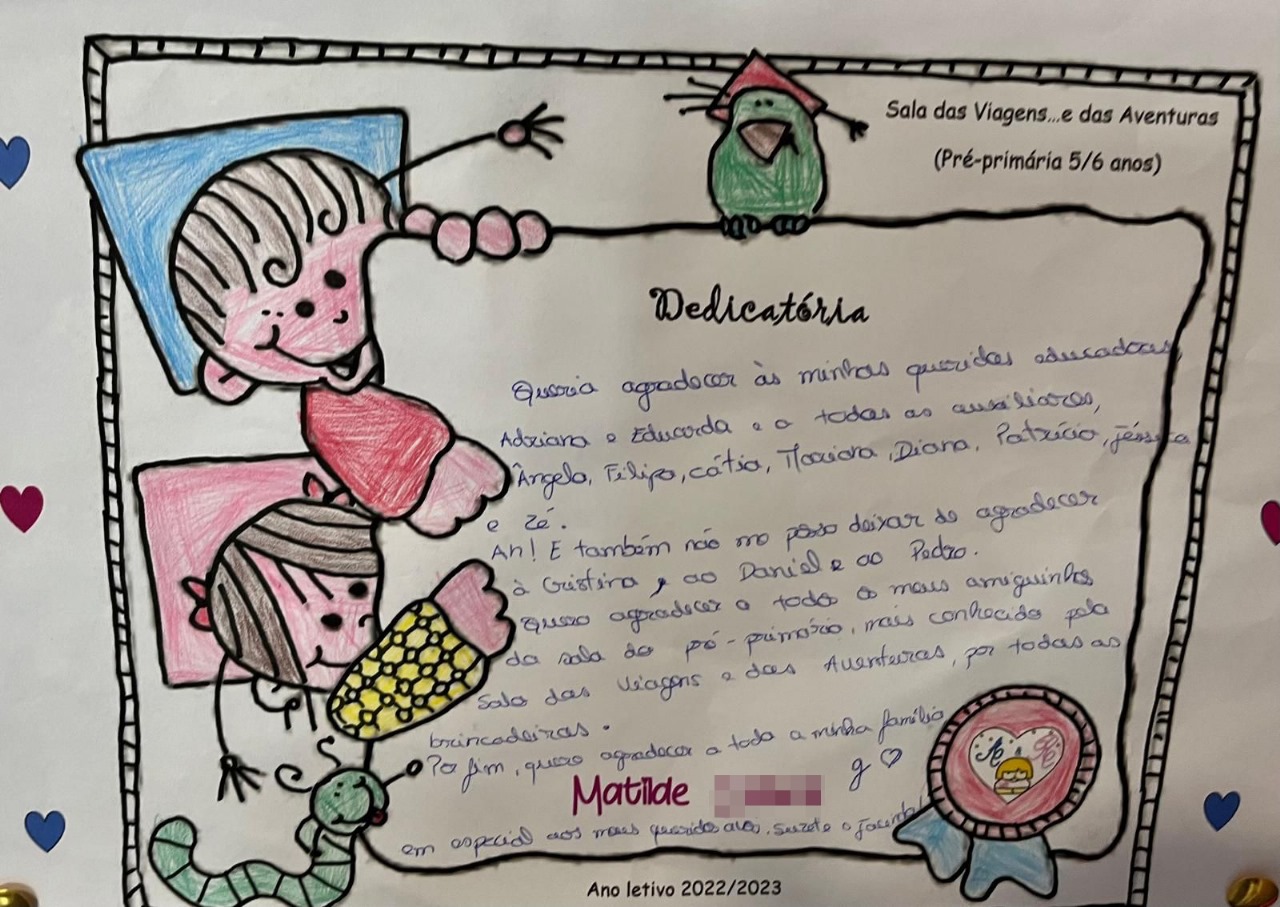 Sala das Viagens...e das Aventuras
(Pré-primária 5/6 anos)
Dedicatória
Queria agradecer às minhas queridas educadoras,
Adriana e Eduarda e a todas as auxiliares,
Ângela, Filipa, cátia, Mariana, Diana, Patrícia, Jéssica
e Zé.
Ah! E também não me posso deixar de agradecer
à Cristina, ao Daniel e ao Pedro.
Quero agradecer a todo o meus amiguinhos
da sala do pré-primário, mais conhecido pela
Sala das Viagens e das Aventuras, por todas as
brincadeiras.
Por fim, quero agradecer a toda a minha família
Matilde
em especial aos meus queridos avós, Suzete e
Ano letivo 2022/2023